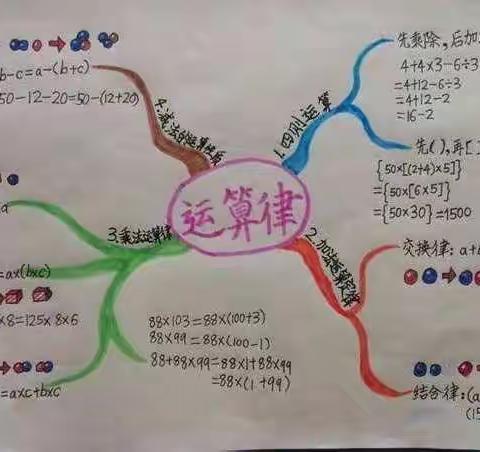 运算律
1.四则运算
先乘除,后加
4+4×3-6÷3
=4+12-6÷3
=4+12-2
=16-2
先( ),再[ ]
{50×[(2+4)×5]}
={50×[6×5]}
={50×30}=1500
2.加法运算定律
交换律:a+b
结合律:(a
(15
3.乘法运算律
a
=a×(b×c)
×8=125×8×6
=a×c+b×c
88×103=88×(100+3)
88×99=88×(100-1)
88+88×99=88×1+88×99
=88×(1+99)
4.减法的运算性质
b-c=a-(b+c)
50-12-20=50-(12+20)